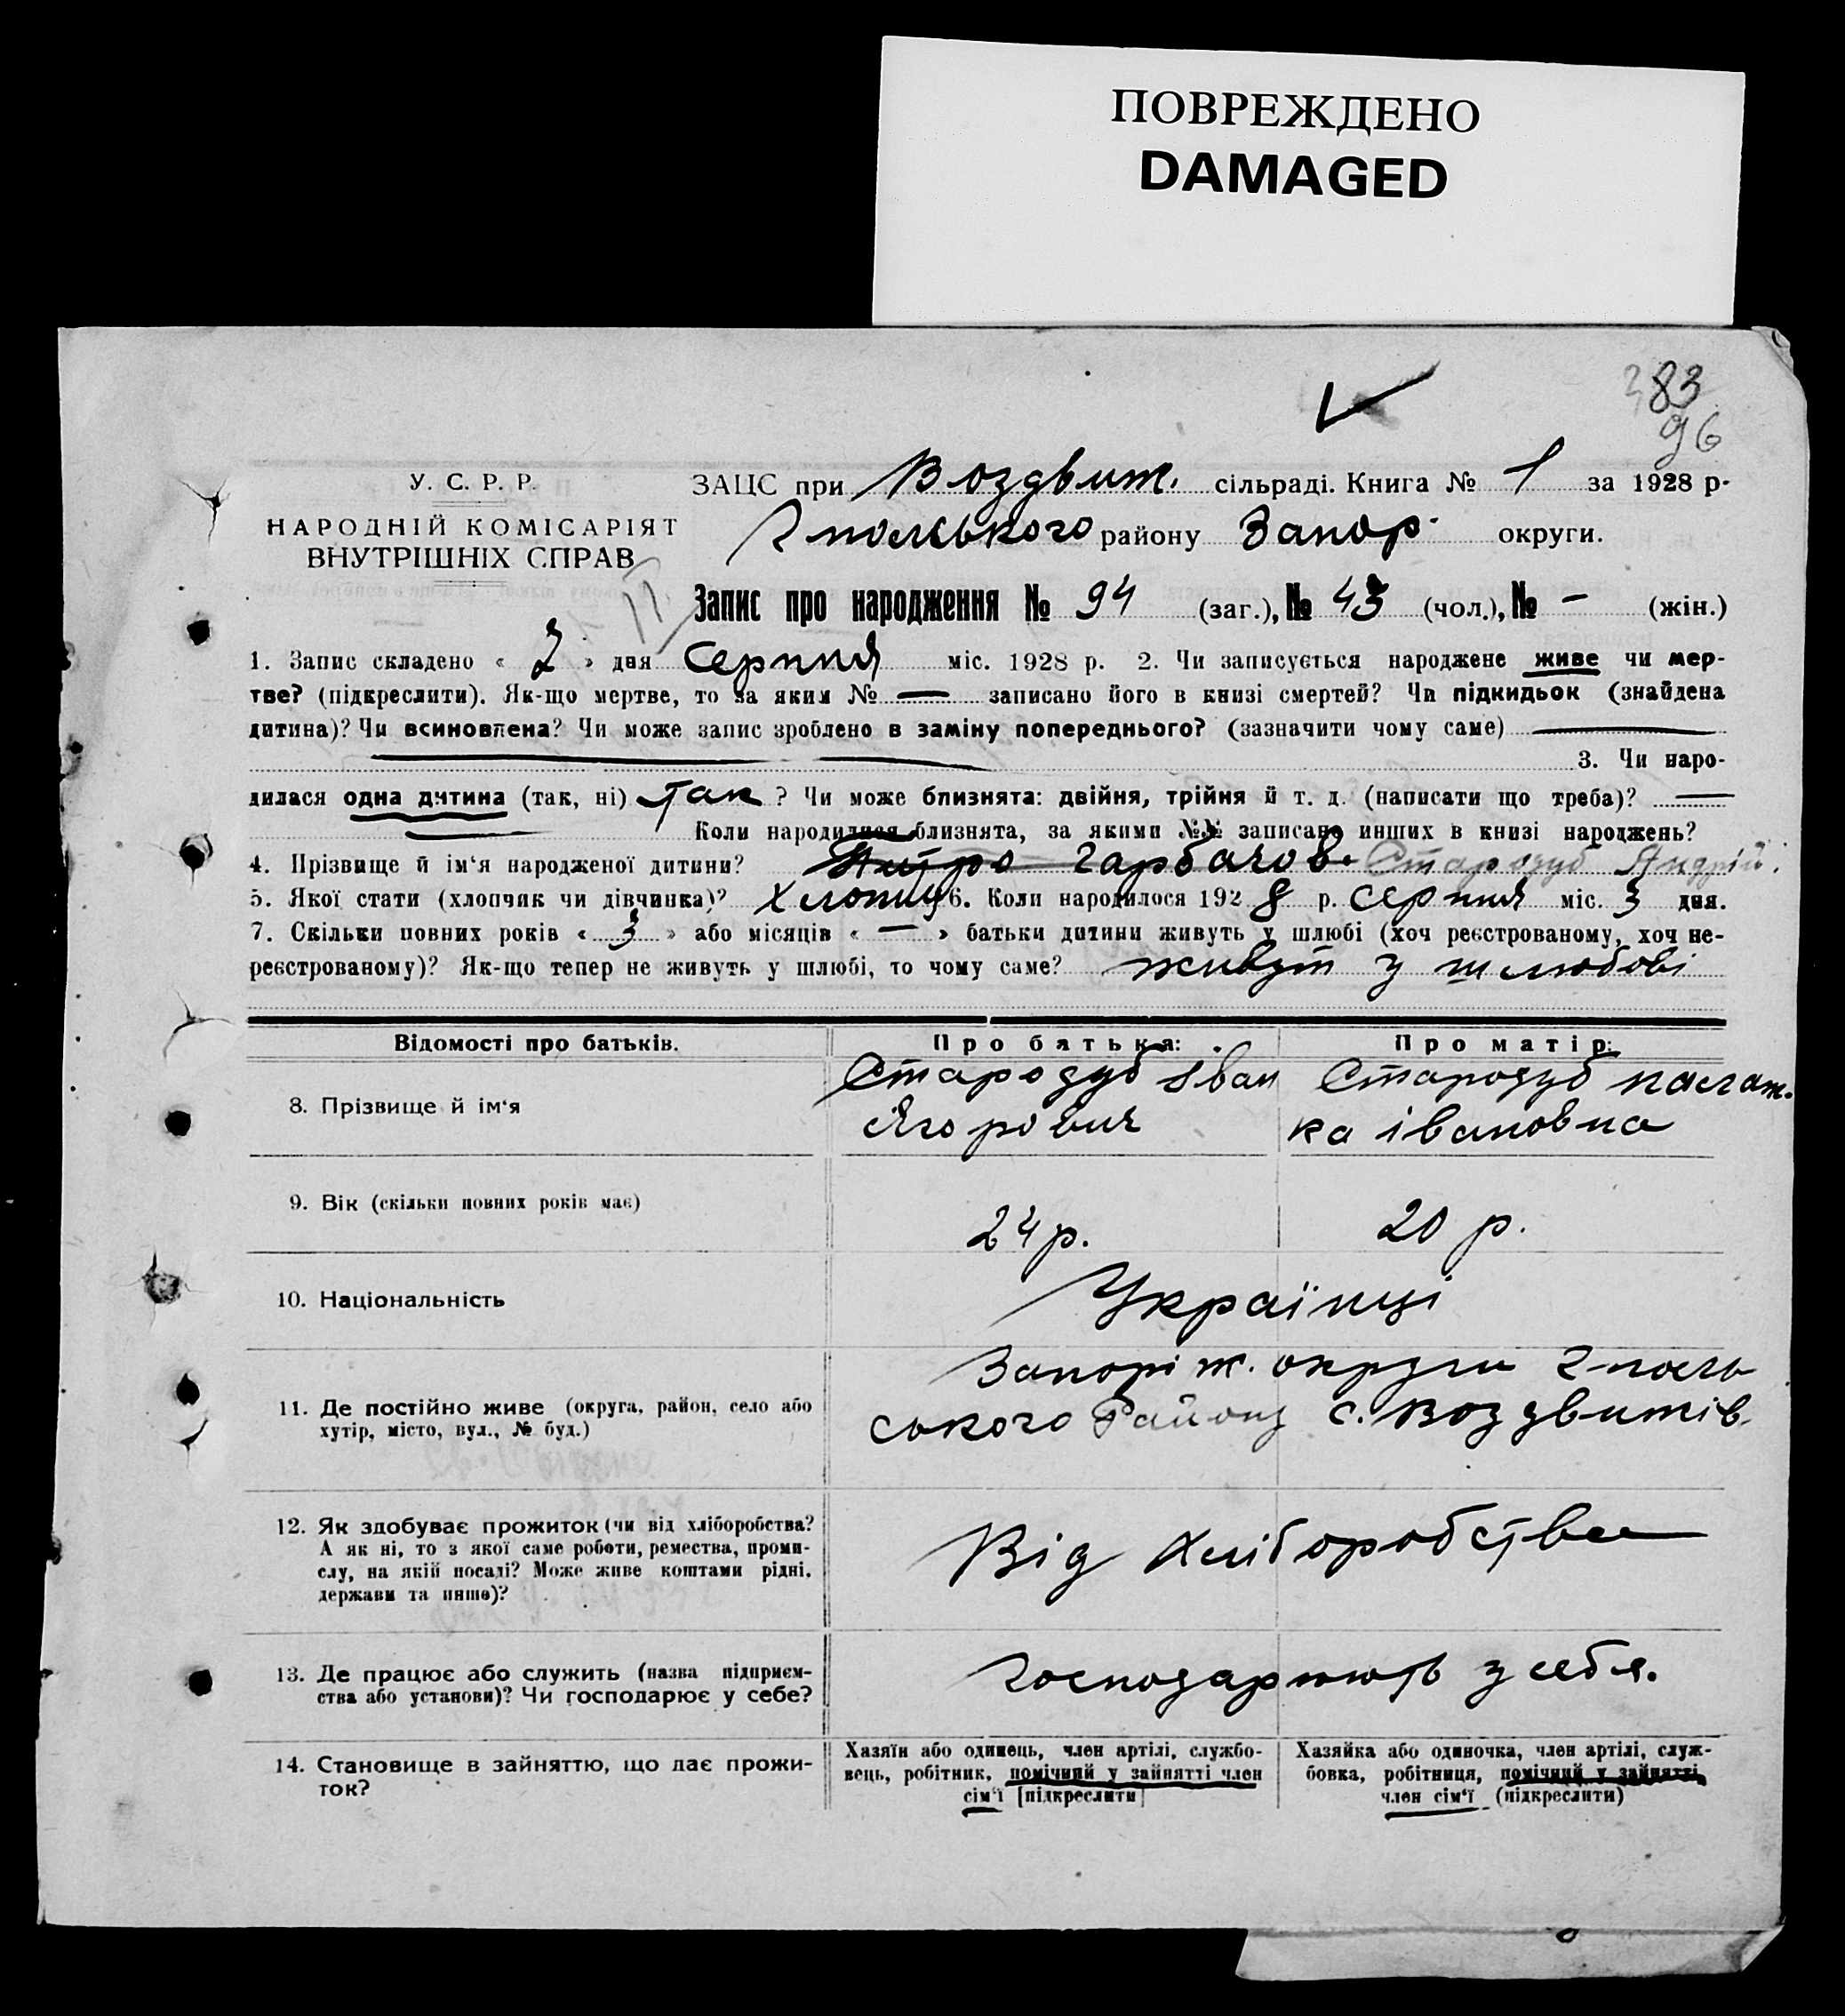 ПОВРЕЖДЕНО
DAMAGED
383
96
У. С. Р. Р.
НАРОДНІЙ КОМІСАРІЯТ
ВНУТРІШНІХ СПРАВ
ЗАЦС при Воздвиж. сільраді. Книга № 1 за 1928 р.
Гпольського району Запор. округи.
Запис про народження № 94 (заг.), № 43 (чол.), № – (жін.)
1. Запис складено « 7 » дня Серпня міс. 1928 р. 2. Чи записується народжене живе чи мер-
тве? (підкреслити). Як-що мертве, то за яким № — записано його в книзі смертей? Чи підкидьок (знайдена
дитина)? Чи всиновлена? Чи може запис зроблено в заміну попереднього? (зазначити чому саме) —
3. Чи наро-
дилася одна дитина (так, ні) Так ? Чи може близнята: двійня, трійня й т. д. (написати що треба)? —
Коли народилися близнята, за якими №№ записано инших в книзі народжень?
4. Прізвище й ім‘я народженої дитини? Гарбачов. Стародуб Андрій.
5. Якої стати (хлопчик чи дівчинка)? Хлопиц 6. Коли народилося 192 8 р. серпня міс. 3 дня.
7. Скільки повних років « 3 » або місяців « — » батьки дитини живуть у шлюбі (хоч реєстрованому, хоч не-
реєстрованому)? Як-що тепер не живуть у шлюбі, то чому саме? живут у шлюбові
Відомості про батьків.
Про батька:
Про матір:
8. Прізвище й ім‘я
Стародуб Іван
Ягорович
Стародуб
ка івановна
9. Вік (скільки повних років має)
24 р.
20 р.
10. Національність
Українці
11. Де постійно живе (округа, район, село або
хутір, місто, вул., № буд.)
Запоріж. округи Гполь
ського Району с. Воздвижів.
12. Як здобуває прожиток (чи від хліборобства?
А як ні, то з якої саме роботи, ремества, проми-
слу, на якій посаді? Може живе коштами рідні,
держави та инше)?
Від Хліборобства
13. Де працює або служить (назва підприєм-
ства або установи)? Чи господарює у себе?
господарюють у себя.
14. Становище в зайняттю, що дає прожи-
ток?
Хазяїн або одинець, член артілі, службо-
вець, робітник, помічний у зайнятті член
сім‘ї [підкреслити]
Хазяйка або одиночка, член артілі, служ-
бовка, робітниця, помічний у зайнятті
член сім‘ї (підкреслити)